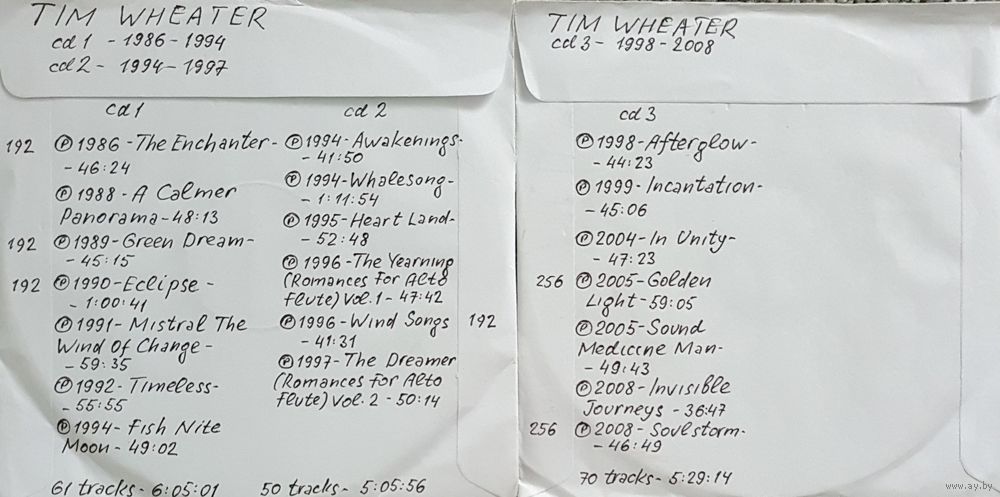 TIM WHEATER
cd 1 - 1986 - 1994
cd 2 - 1994 - 1997
cd 1
192 Ⓟ 1986 - The Enchanter -
- 46:24
Ⓟ 1988 - A Calmer
Panorama - 48:13
192 Ⓟ 1989 - Green Dream -
- 45:15
192 Ⓟ 1990 - Eclipse -
- 1:00:41
Ⓟ 1991 - Mistral The
Wind Of Change -
- 59:35
Ⓟ 1992 - Timeless -
- 55:55
Ⓟ 1994 - Fish Nite
Moon - 49:02
61 tracks - 6:05:01
cd 2
Ⓟ 1994 - Awakenings -
- 41:50
Ⓟ 1994 - Whalesong -
- 1:11:54
Ⓟ 1995 - Heart Land -
- 52:48
Ⓟ 1996 - The Yearning
(Romances For Alto
Flute) Vol. 1 - 47:42
Ⓟ 1996 - Wind Songs 192
- 41:31
Ⓟ 1997 - The Dreamer
(Romances For Alto
Flute) Vol. 2 - 50:14
50 tracks - 5:05:56
TIM WHEATER
cd 3 - 1998 - 2008
cd 3
Ⓟ 1998 - Afterglow -
- 44:23
Ⓟ 1999 - Incantation -
- 45:06
Ⓟ 2004 - In Unity -
- 47:23
256 Ⓟ 2005 - Golden
Light - 59:05
Ⓟ 2005 - Sound
Medicine Man -
- 49:43
Ⓟ 2008 - Invisible
Journeys - 36:47
256 Ⓟ 2008 - Soulstorm -
- 46:49
70 tracks - 5:29:14
www.ay.by